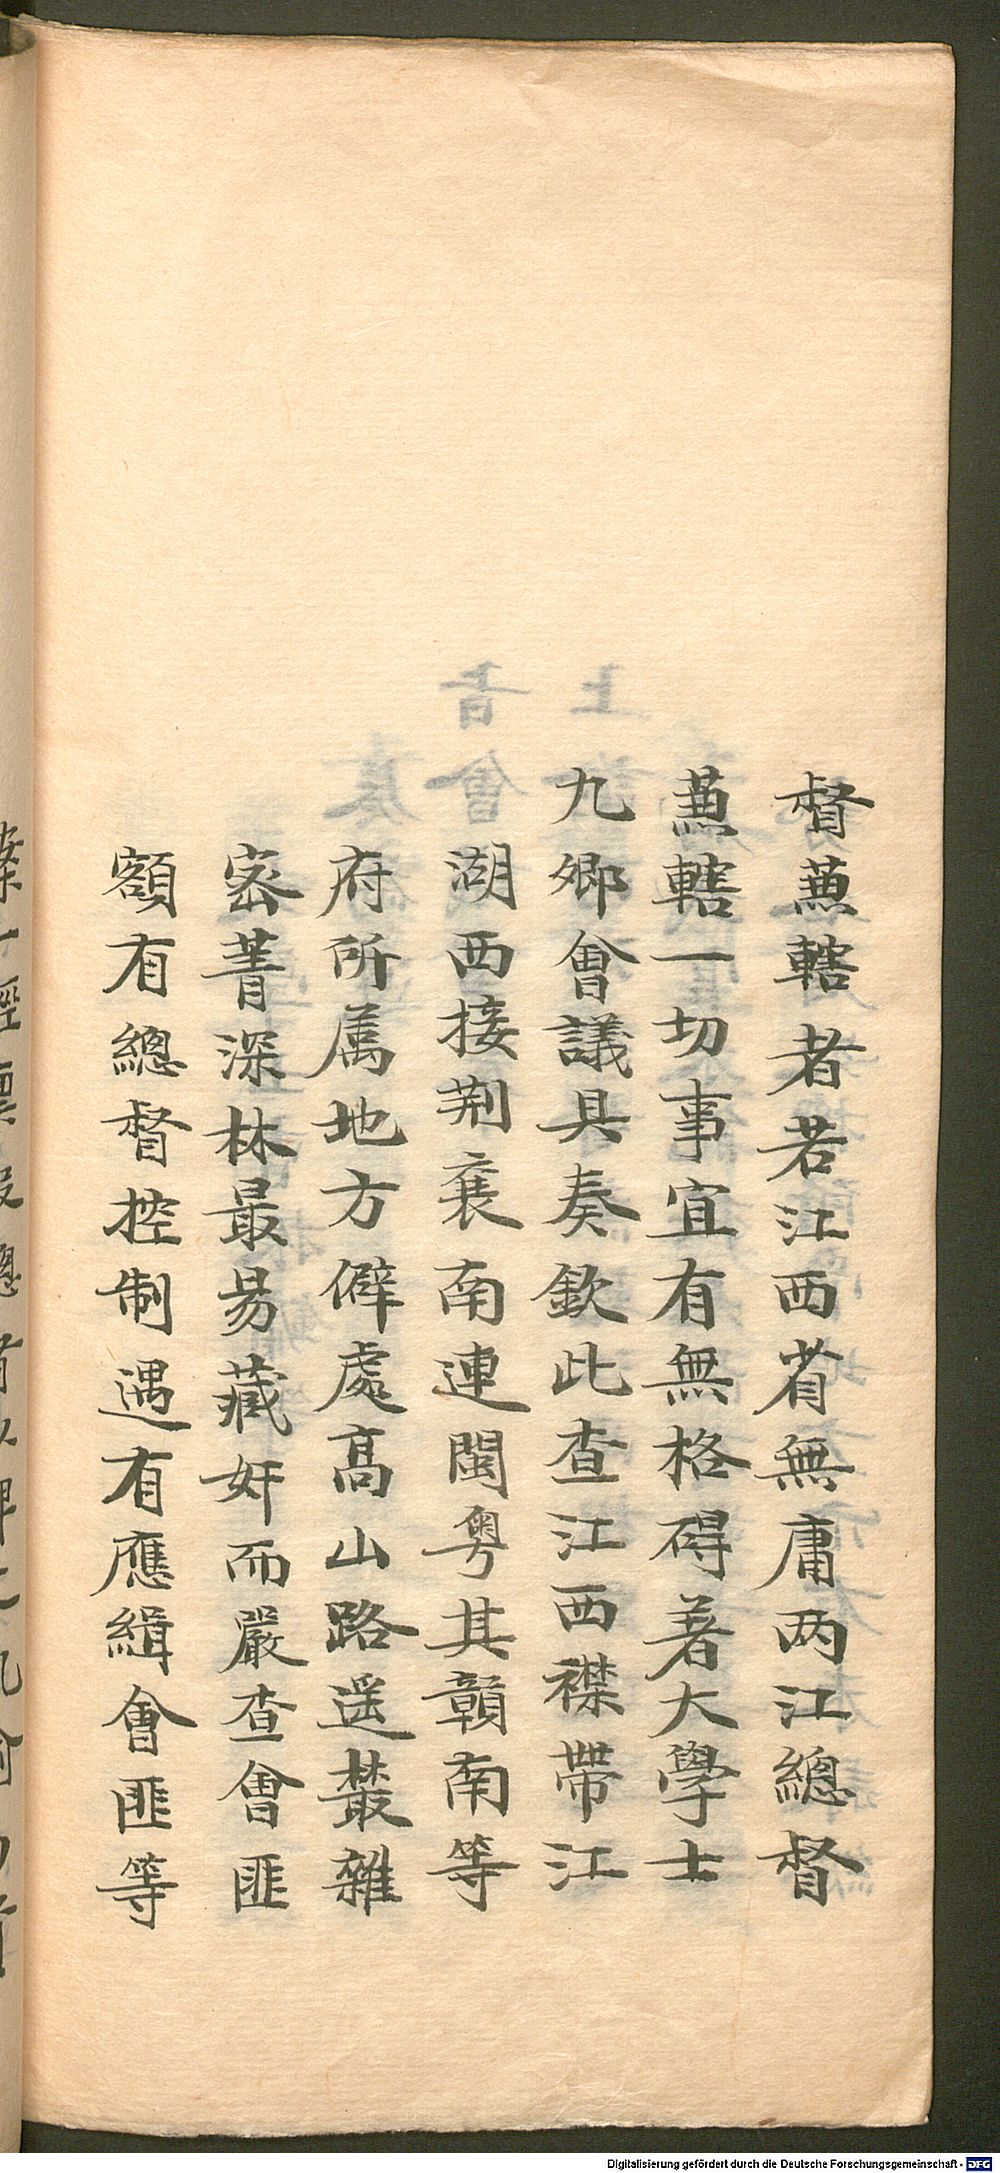 督蕉轄者若江西省無庸两江總督
蕉轄一切事宜有無格碍著大學士
九卿會議具奏欽此查江西襟帶江
湖西接荆襄南連閩粤其贛南等
府所属地方僻處高山路遥叢雜
宻菁深林最易藏奸而嚴查會匪
額有總督控制遇有應緝會匪等
Digitalisierung gefördert durch die Deutsche Forschungsgemeinschaft - DFG